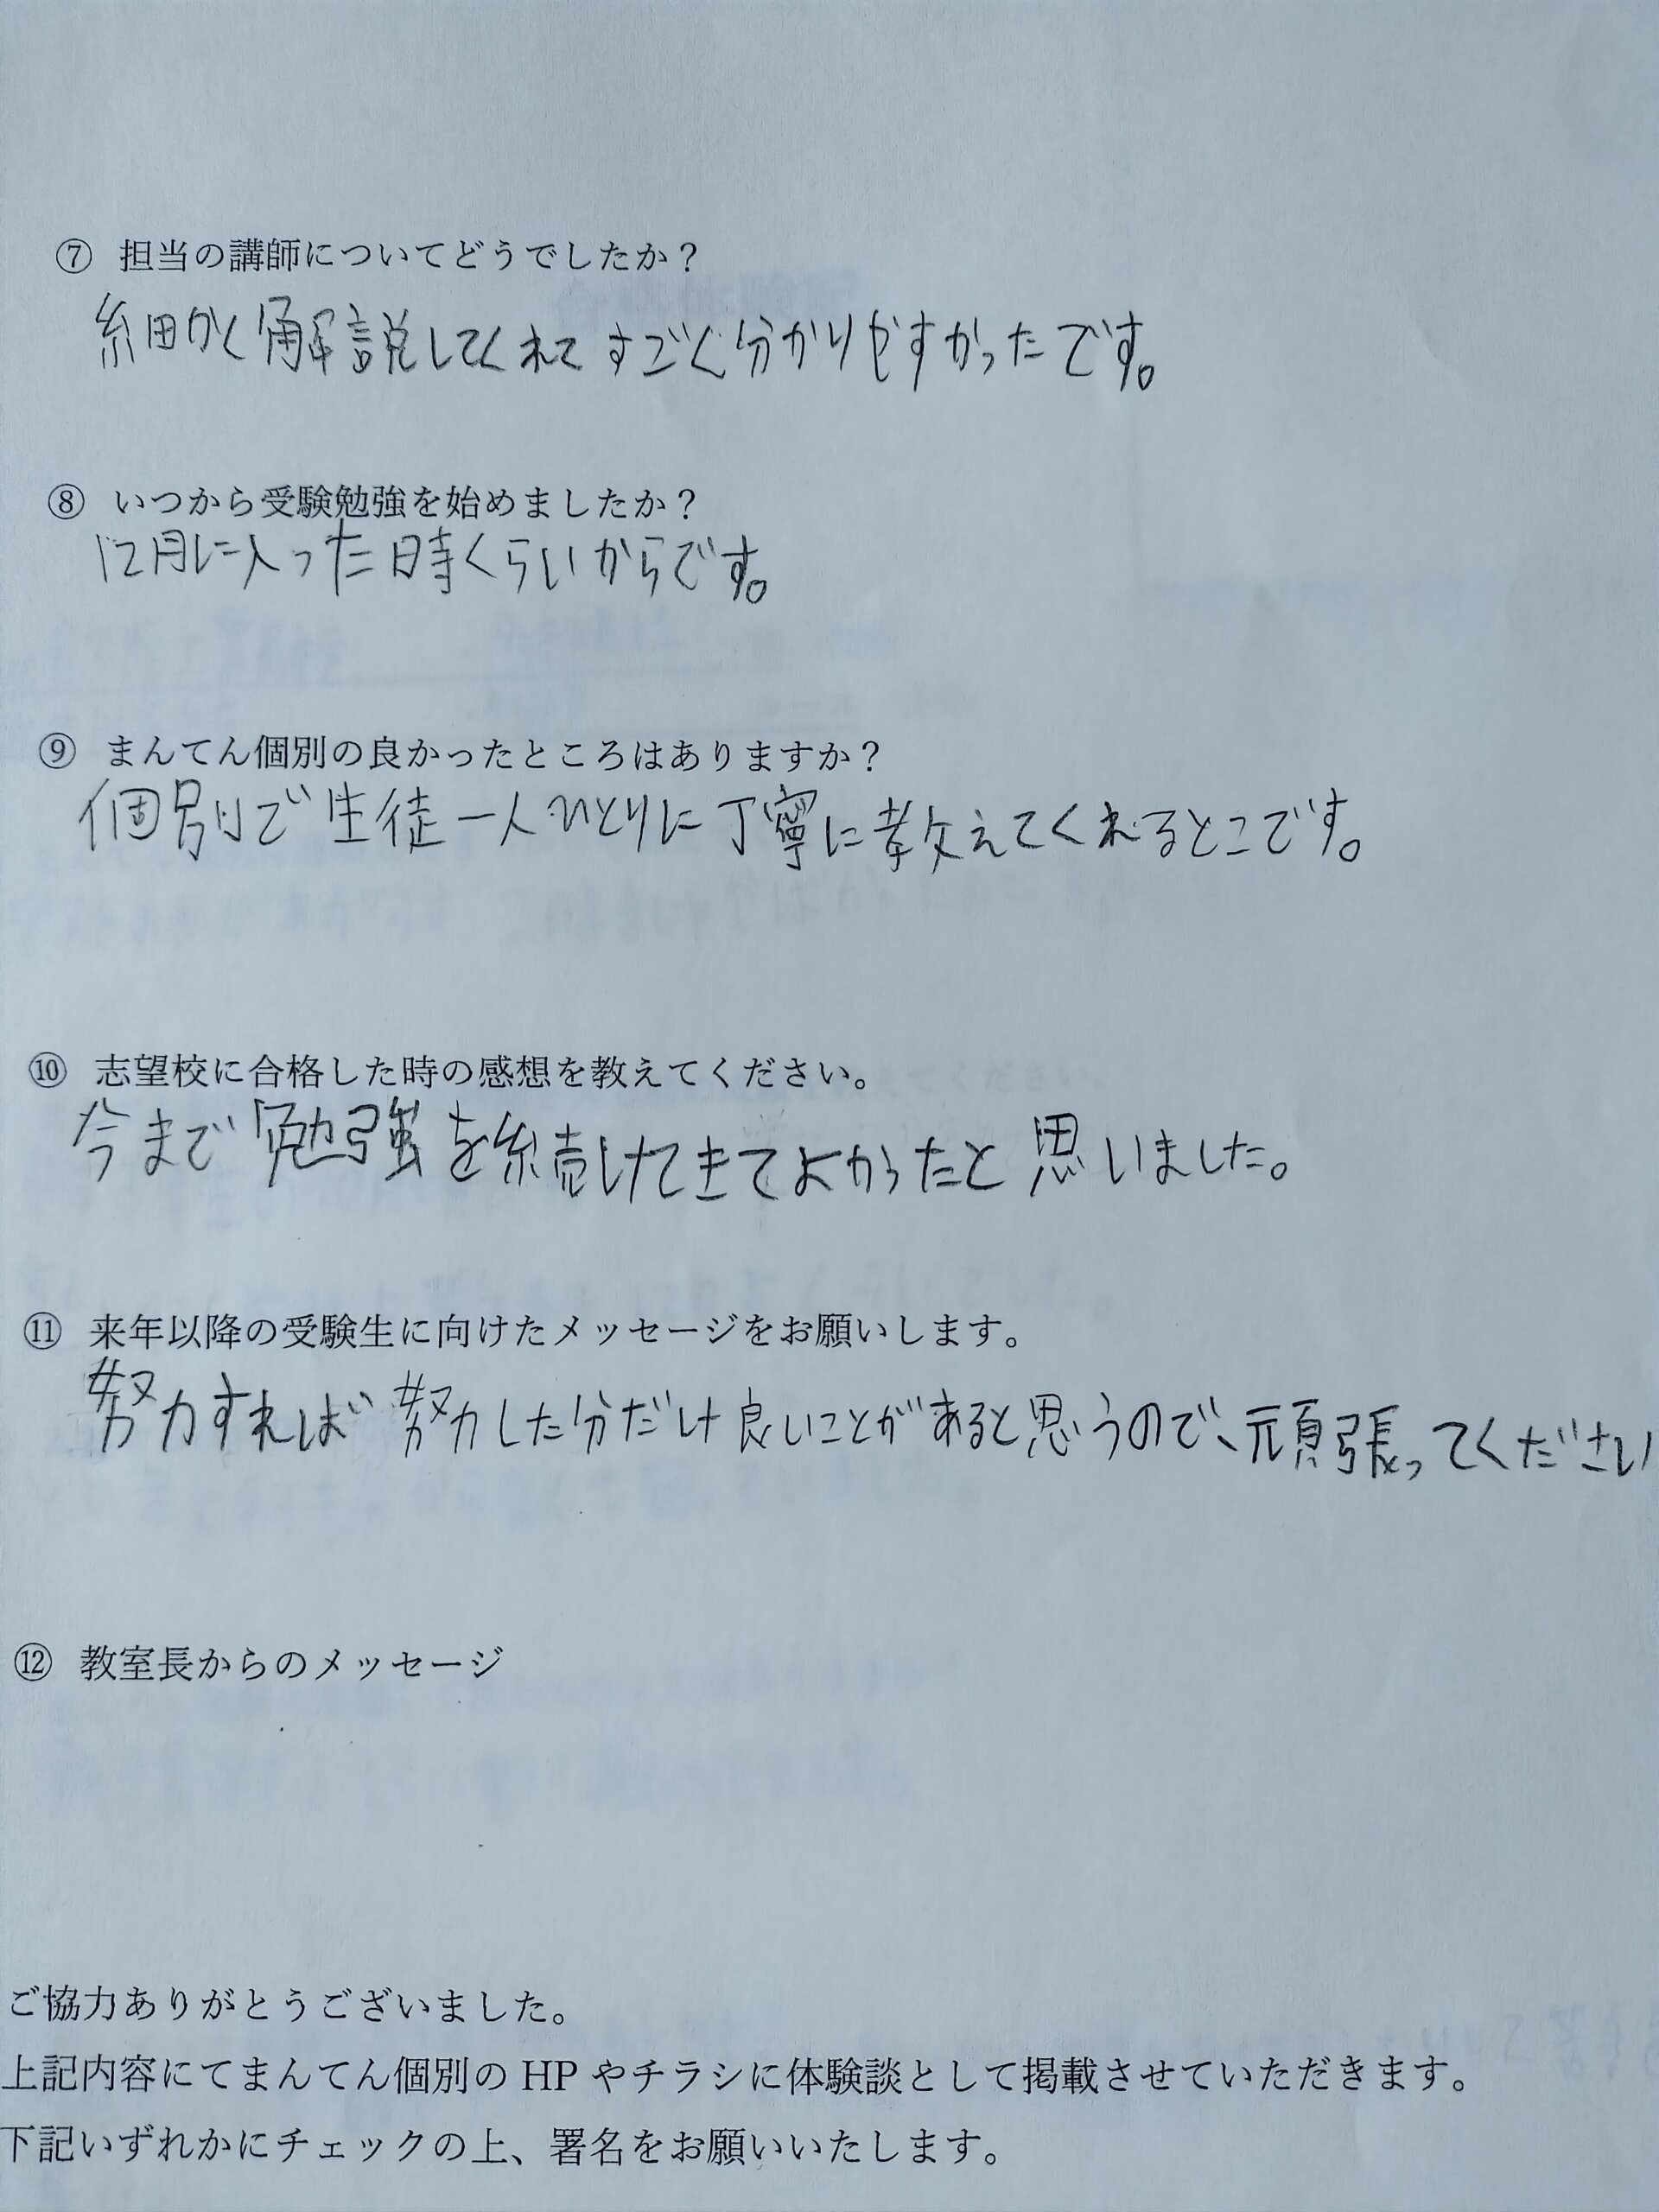 ⑦ 担当の講師についてどうでしたか？
細かく解説してくれてすごく分かりやすかったです。
⑧ いつから受験勉強を始めましたか？
12月に入った時くらいからです。
⑨ まんてん個別の良かったところはありますか？
個別で生徒一人ひとりに丁寧に教えてくれるとこです。
⑩ 志望校に合格した時の感想を教えてください。
今まで勉強を続けてきてよかったと思いました。
⑪ 来年以降の受験生に向けたメッセージをお願いします。
努力すれば努力した分だけ良いことがあると思うので、頑張ってください
⑫ 教室長からのメッセージ
ご協力ありがとうございました。
上記内容にてまんてん個別の HP やチラシに体験談として掲載させていただきます。
下記いずれかにチェックの上、署名をお願いいたします。